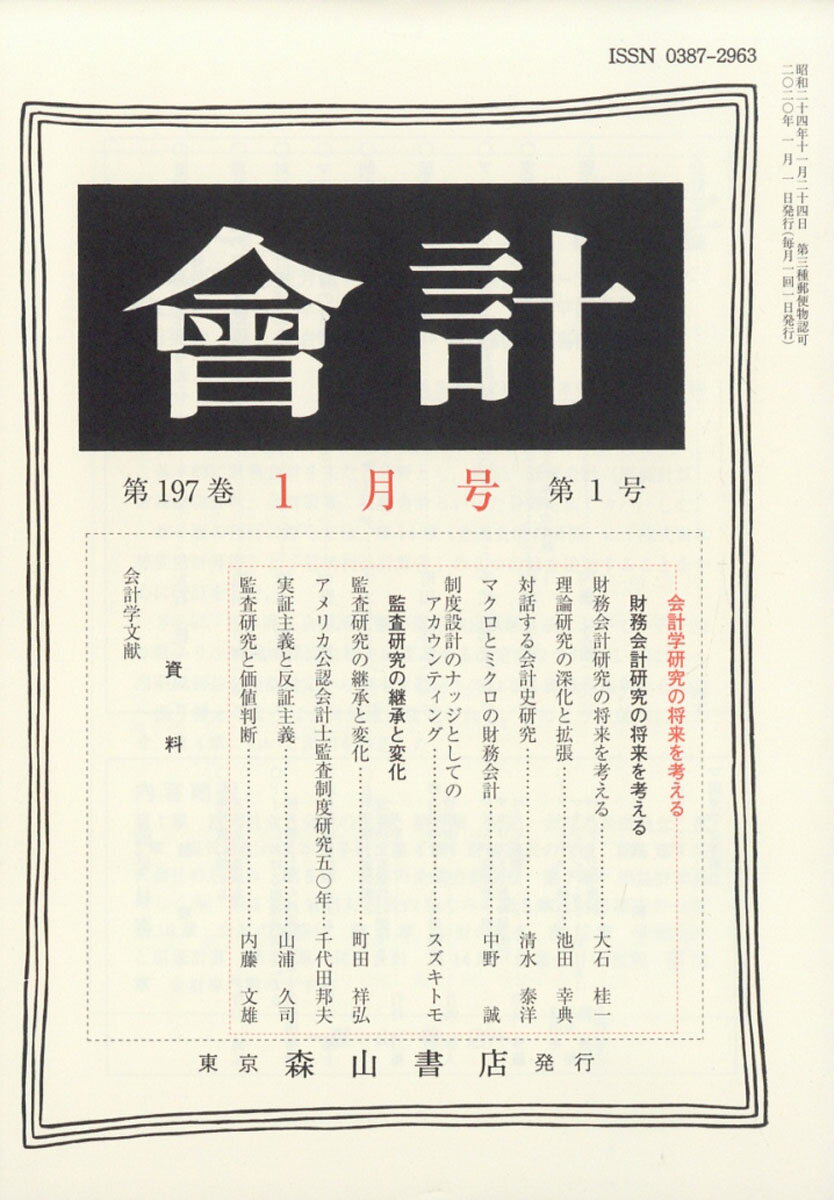 ISSN 0387-2963
昭和二十四年十一月二十四日 第三種郵便物認可
二〇二〇年 一月 一日発行(毎月一回一日発行)
會計
第197巻 1月号 第1号
会計学研究の将来を考える
財務会計研究の将来を考える
財務会計研究の将来を考える……大石 桂一
理論研究の深化と拡張……池田 幸典
対話する会計史研究……清水 泰洋
マクロとミクロの財務会計……中野 誠
制度設計のナッジとしての
アカウンティング……スズキトモ
監査研究の継承と変化
監査研究の継承と変化……町田 祥弘
アメリカ公認会計士監査制度研究五〇年…千代田邦夫
実証主義と反証主義……山浦 久司
監査研究と価値判断……内藤 文雄
資料
会計学文献
東京 森山書店 発行